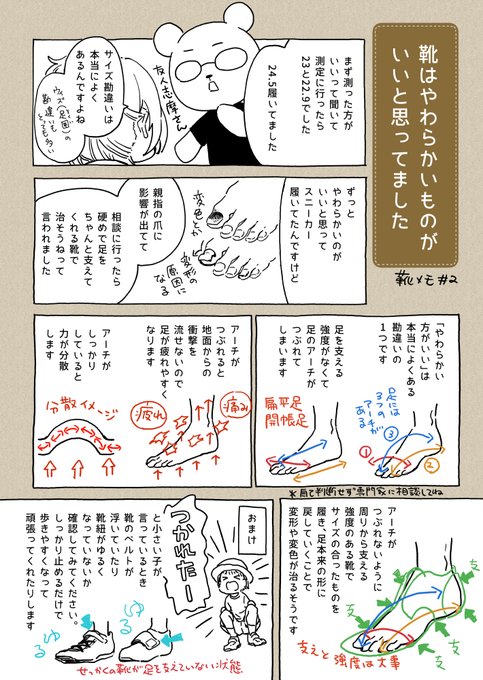 靴はやわらかいものが
いいと思ってました
靴メモ#2
まず測った方が
いいって聞いて
測定に行ったら
23と22.9でした
24.5履いてました
友人志摩さん
サイズ勘違いは
本当によく
あるんですよね
ウィズ(足囲)の
勘違いも
とっても多い
ずっと
やわらかいのが
いいと思って
スニーカー
履いてたんですけど
変色とか
変形の
原因に
なる
親指の爪に
影響が出てて
相談に行ったら
硬めで足を
ちゃんと支えて
くれる靴で
治そうねって
言われました
「やわらかい
方がいい」は
本当によくある
勘違いの
1つです
足には
3つの
アーチが
ある
①
②
③
足を支える
強度がなくて
足のアーチが
つぶれて
しまいます
扁平足
開帳足
アーチが
つぶれると
地面からの
衝撃を
流せないので
足が疲れやすく
なります
痛み
疲れ
アーチが
しっかり
していると
力が分散
します
分散イメージ
*見て判断せず専門家に相談してね
アーチが
つぶれないように
周りから支える
強度のある靴で
サイズの合ったものを
履き、足本来の形に
戻していくことで
変形や変色が治るそうです
支
支
支
支
支
支えと強度は大事
おまけ
つかれたー
と小さい子が
言っているとき
靴のベルトが
浮いていたり
靴紐がゆるく
なっていないか
確認してみてください。
しっかり止めるだけで
歩きやすくなって
頑張ってくれたりします
ゆる
ゆる
せっかくの靴が足を支えていない状態